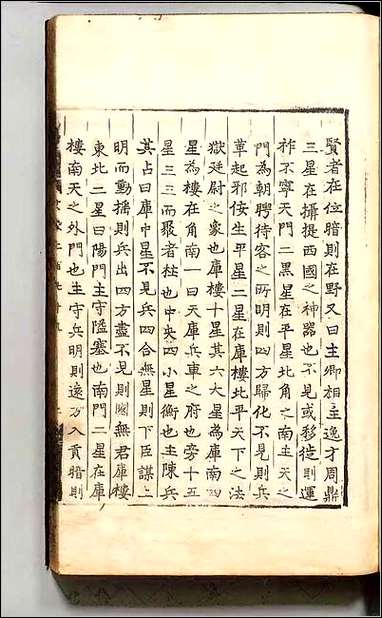 賢者在位暗則在野又曰主卿相主逸才周鼎
三星在攝提西國之神器也不見或移徙則運
祚不寧天門二黑星在平星北角之南主天之
門為朝聘待客之所明則四方歸化不見則兵
革起邪佞生平星二星在庫樓北平天下之法
獄廷尉之象也庫樓十星其六大星為庫南四
星為樓在角南一曰天庫兵車之府也旁十五
星三三而聚者柱也中央四小星衡也主陳兵
其占曰庫中星不見兵四合無星則下臣謀上
明而動搖則兵出四方盡不見則國無君庫樓
東北二星曰陽門主守隘塞也南門二星在庫
樓南天之外門也主守兵明則遠方入貢暗則